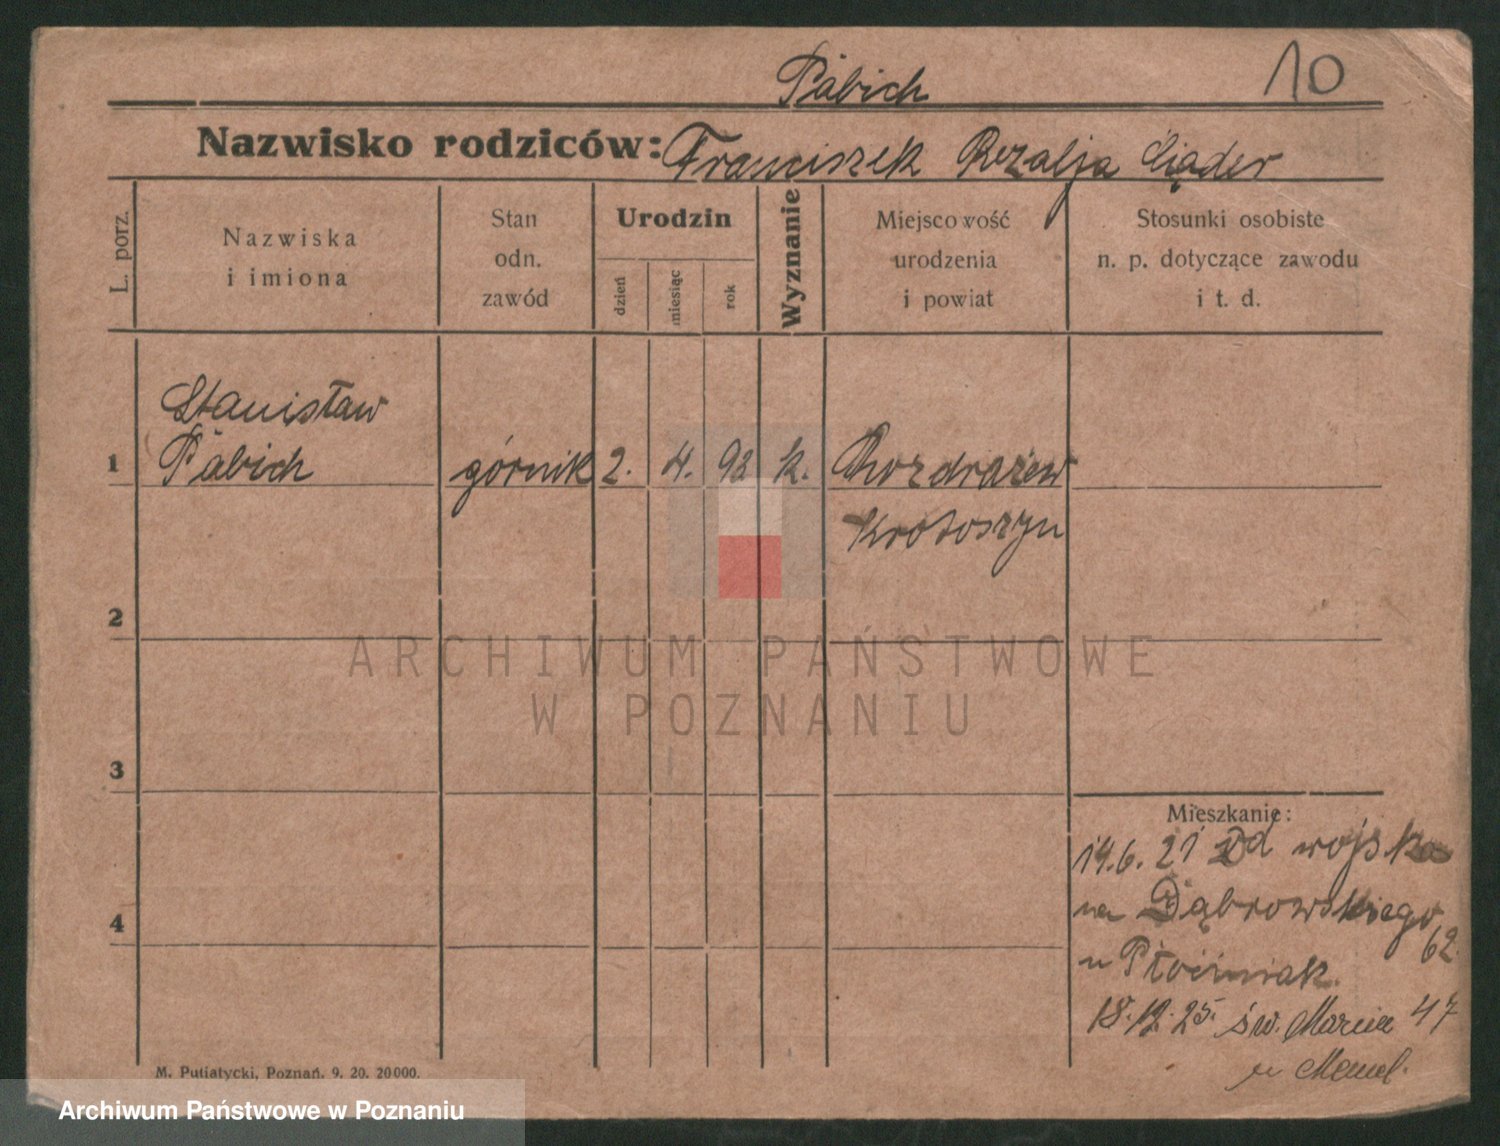 Pabich
10
Nazwisko rodziców: Franciszek Rozalja
L. porz.
Nazwiska
i imiona
Stan
odn.
zawód
Urodzin
dzień
miesiąc
rok
Wyznanie
Miejscowość
urodzenia
i powiat
Stosunki osobiste
n. p. dotyczące zawodu
i t. d.
Stanisław
1 Pabich górnik 2. 4. 92 k. Rozdrażew
Krotoszyn
2
ARCHIWUM PAŃSTWOWE
W POZNANIU
3
Mieszkanie:
14.6.21 Od wojska
4 na Dąbrowskiego
62.
u Płóciniak.
18.12.25. św. Marcin 47
u
M. Putiatycki, Poznań. 9. 20. 20000.
Archiwum Państwowe w Poznaniu